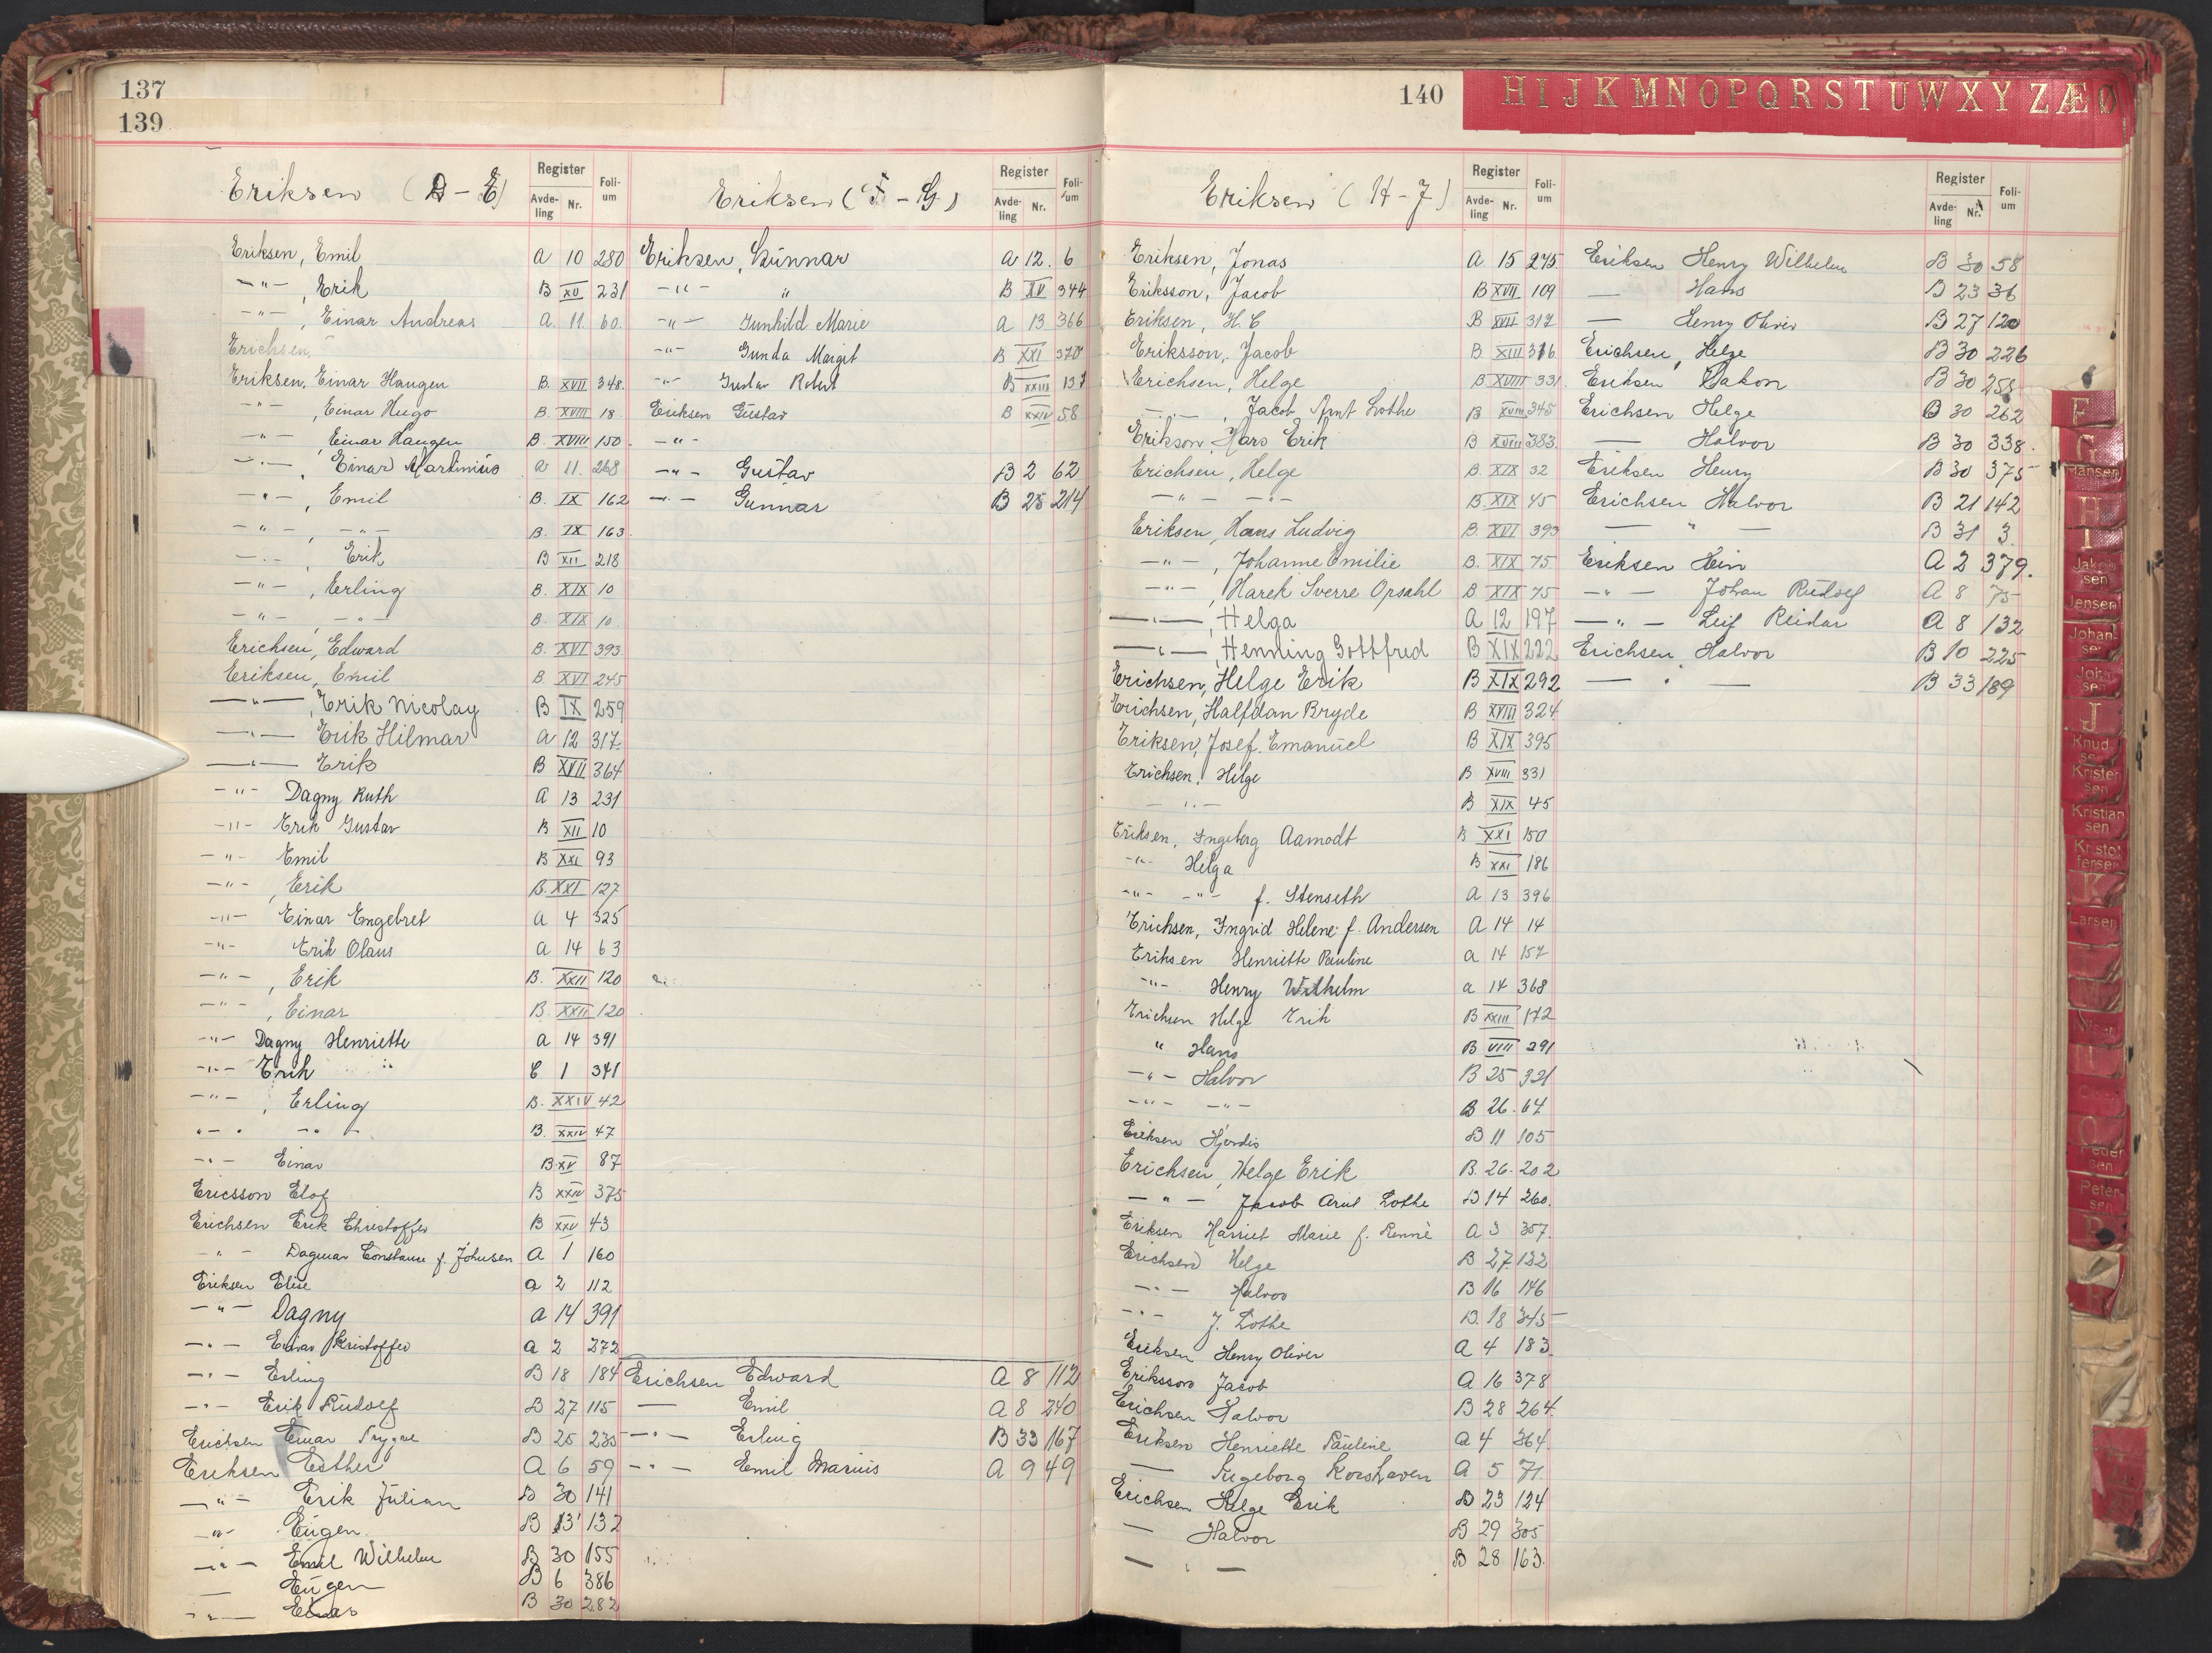 137
139
Eriksen (D - E)
Register
Avde-ling Nr.
Foli-um
Eriksen, Emil A 10 280
-"- , Erik B XV 231
-"- , Einar Andreas A. 11. 60.
Erichsen,
Eriksen, Einar Haugen B. XVII 348.
-"- , Einar Hugo B. XVIII 18.
-"- , Einar Haugen B. XVIII 150.
-"- , Einar Martinius A 11. 268
-"- , Emil B. IX 162
-"- , -"- B. IX 163.
-"- , Erik B XII 218
-"- , Erling B. XIX 10
-"- , -"- B. XIX 10.
Erichsen, Edward B. XVI 393
Eriksen, Emil B XVI 245
-"- , Erik Nicolay B IX 259
-"- Erik Hilmar A 12 317.
-"- Erik B XVII 364
-"- Dagny Ruth A 13 231
-"- Erik Gustav B XII 10
-"- Emil B XXI 93
-"- , Erik B. XXI 127
-"- Einar Engebret A 4 325
-"- Erik Olaus A 14 63
-"- , Erik B. XXII 120
-"- , Einar B. XXII 120
-"- Dagny Henriette A 14 391
-"- Erik C 1 341
-"- , Erling B. XXIV 42
-"- -"- B. XXIV 47
-"- Einar B. XV 87
Ericsson Elof B XXIV 375
Erichsen Erik Christoffer B XXV 43
-"- Dagmar Constance f. Johnsen A 1 160
Eriksen Elise A 2 112
-"- Dagny A 14 391
-"- Einar Kristoffer A 2 272
-"- Erling B 18 184
-"- Erik Rudolf B 27 115
Erichsen Einar Trygve B 25 235
Eriksen Esther A 6 59
-"- Erik Julian B 30 141
-"- Eugen B 13 132
-"- Emil Wilhelm B 30 155
— Eugen B 6 386
-"- Einar B 30 282
Eriksen (F - G)
Register
Avde-ling Nr.
Foli-um
Eriksen, Gunnar A 12. 6
-"- " B XV 344
-"- Gunhild Marie A 13 366
-"- Gunda Margit B XXI 370
-"- Gustav Robert B XXIII 137
Eriksen Gustav B XXIV 58
-"-
-"- Gustav B 2 62
-"- Gunnar B 25 214
Erichsen Edward A 8 112
— Emil A 8 240
-"- Erling B 33 167
-"- Emil Marius A 9 49
140
H I J K M N O P Q R S T U W X Y Z Æ Ø
Eriksen (H - J)
Register
Avde-ling Nr.
Foli-um
Eriksen, Jonas A 15 275.
Eriksson, Jacob B XVII 109
Eriksen, H. C B XVII 317
Eriksson, Jacob B. XIII 316
Erichsen, Helge B XVIII 331.
-"- , Jacob Arnt Lothe B XVIII 345
Erikson Hars Erik B XVIII 383.
Erichsen, Helge B. XIX 32
-"- -"- B. XIX 45
Eriksen, Hans Ludvig B. XVI 393
-"- , Johanne Emilie B. XIX 75
-"- , Harek Sverre Opsahl B XIX 75
-"- , Helga A 12 197
-"- , Henning Gottfred B XIX 222
Erichsen, Helge Erik B XIX 292
Erichsen, Halfdan Bryde B XVIII 324
Eriksen, Josef. Emanuel B XIX 395
Erichsen, Helge B XVIII 331
-"- B XIX 45
Eriksen, Ingeborg Aamodt B XXI 150
-"- Helga B XXI 186
-"- -"- f. Stenseth A 13 396
Erichsen, Ingrid Helene f. Andersen A 14 14
Eriksen Henriette Pauline A 14 157
-"- Henry Wilhelm A 14 368
Erichsen Helge Erik B XXIII 172
" Hans B VIII 291
-"- Halvor B 25 321
-"- -"- B 26. 64
Eriksen Hjørdis B 11 105
Erichsen, Helge Erik B. 26. 202
-"- Jacob Arnt Lothe B 14 260.
Eriksen Harriet Marie f. Rennè A 3 357.
Erichsen Helge B 27 132
-"- Halvor B 16 146
-"- J. Lothe B. 18 345
Eriksen Henry Oliver A 4 183.
Eriksson Jacob A 16 378
Erichsen Halvor B 28 264.
Eriksen Henriette Pauline A 4 364
— Ingeborg Korshaven A 5 71
Erichsen Helge Erik B 23 124
— Halvor B 29 305
— " — B 28 163.
Register
Avde-ling Nr.
Foli-um
Eriksen Henry Wilhelm B 30 58
— Hans B 23 36
— Henry Oliver B 27 120
Erichsen, Helge B 30 226
Eriksen Håkon B 30 258
Erichsen Helge B 30 262
— Halvor B 30 338.
Eriksen Henry B 30 375
Erichsen Halvor B 21 142
— " — B 31 3.
Eriksen Hein A 2 379.
-"- Johan Rudolf A 8 75
-"- Leif Reidar A 8 132
Erichsen, Halvor B 10 225
— " — B 33 189
F
G
Hansen
H
I
Jakobsen
Jensen
Johansen
Johnsen
J
Knudsen
Kristensen
Kristiansen
Kristoffersen
K
Larsen
Pedersen
Petersen